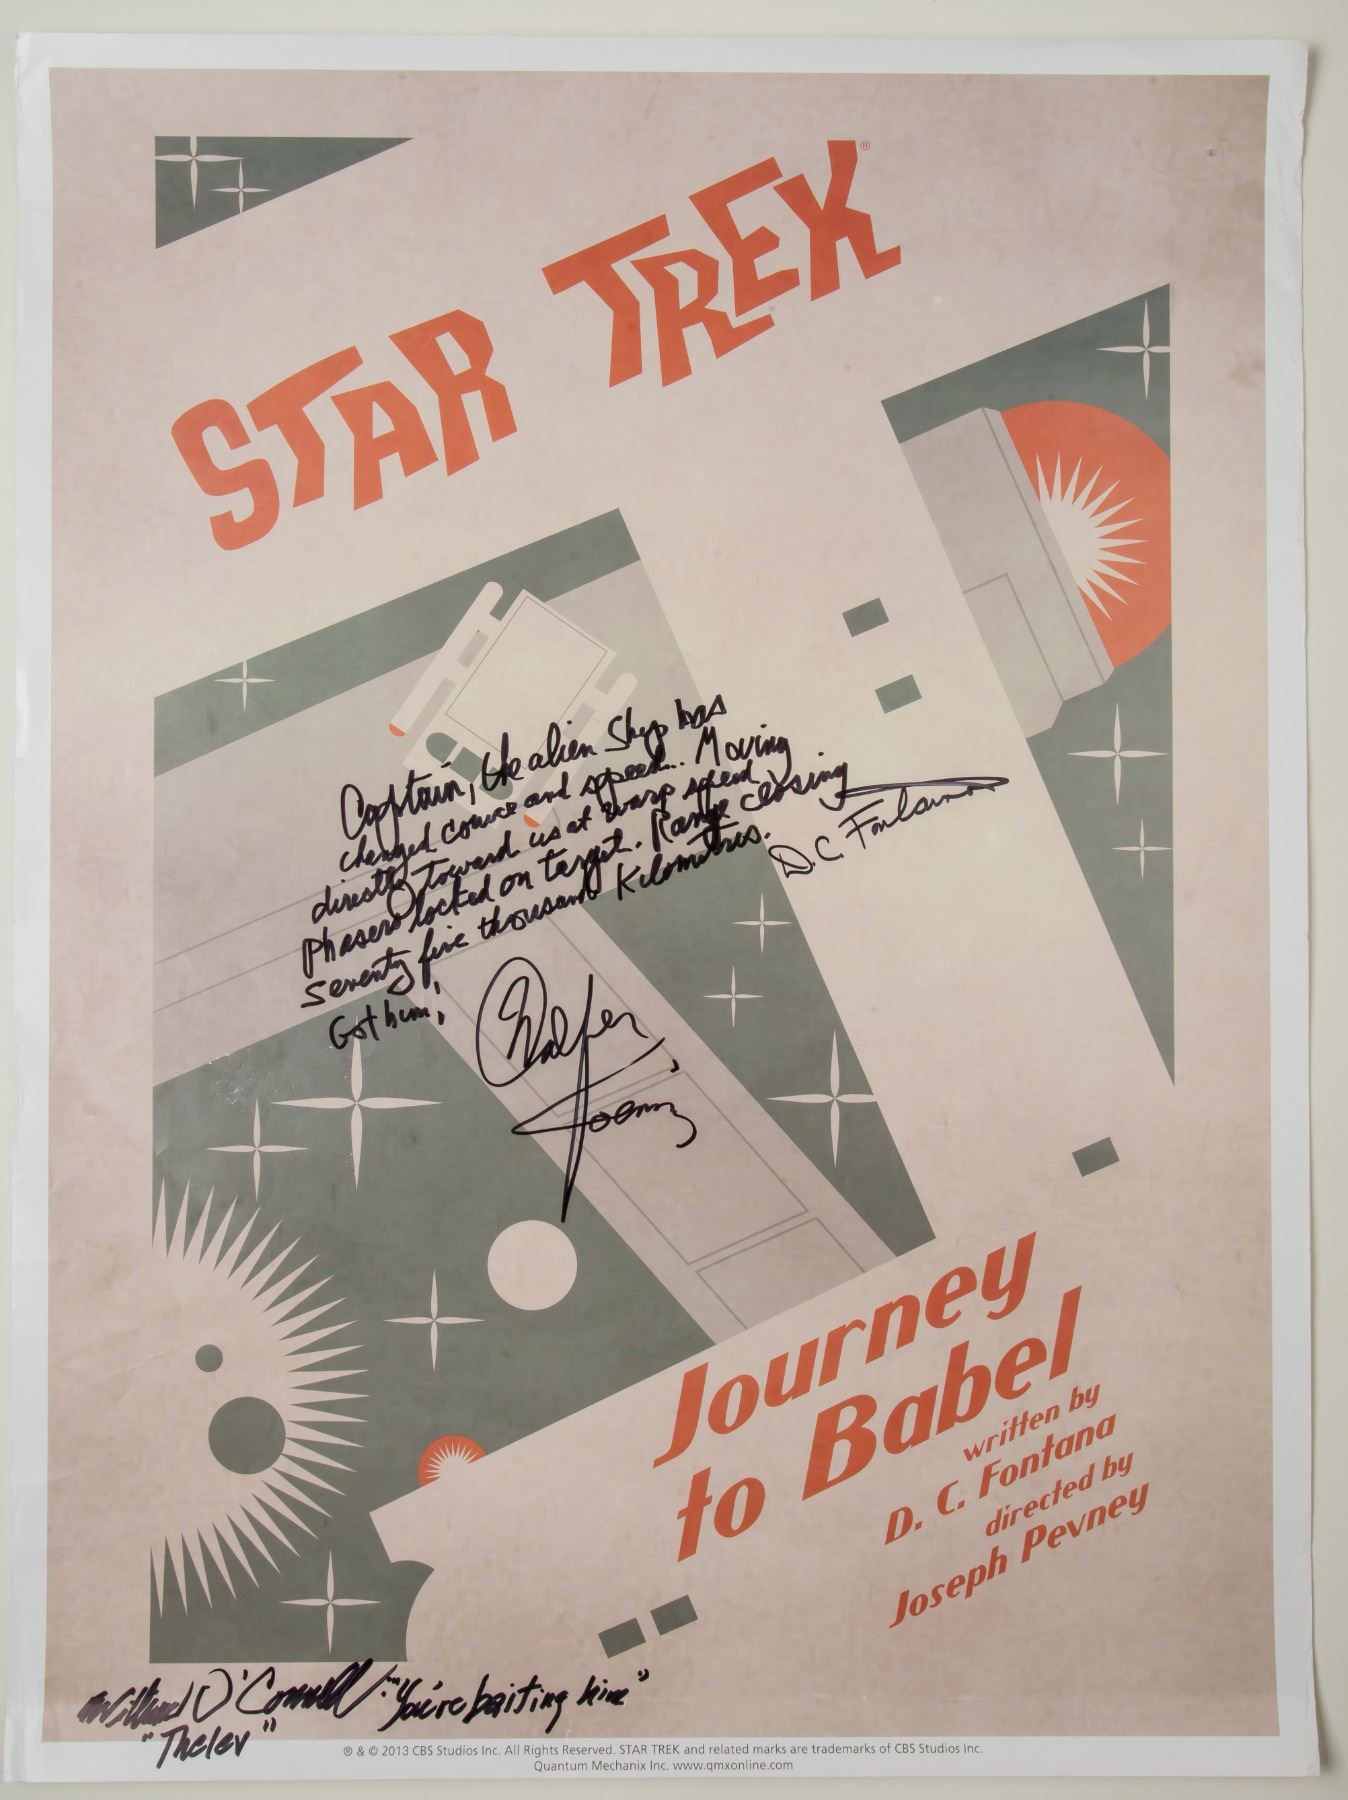 STAR TREK®
Captain, the alien Ship has
changed course and speed... Moving
directly toward us at warp speed
Phasers locked on target. Range closing
seventy five thousand Kilometres.
Got him,
Walter
Koenig
D.C. Fontana
Journey
to Babel
written by
D. C. Fontana
directed by
Joseph Pevney
William O'Connell: "You're baiting him"
"Thelev"
® & © 2013 CBS Studios Inc. All Rights Reserved. STAR TREK and related marks are trademarks of CBS Studios Inc.
Quantum Mechanix Inc. www.qmxonline.com